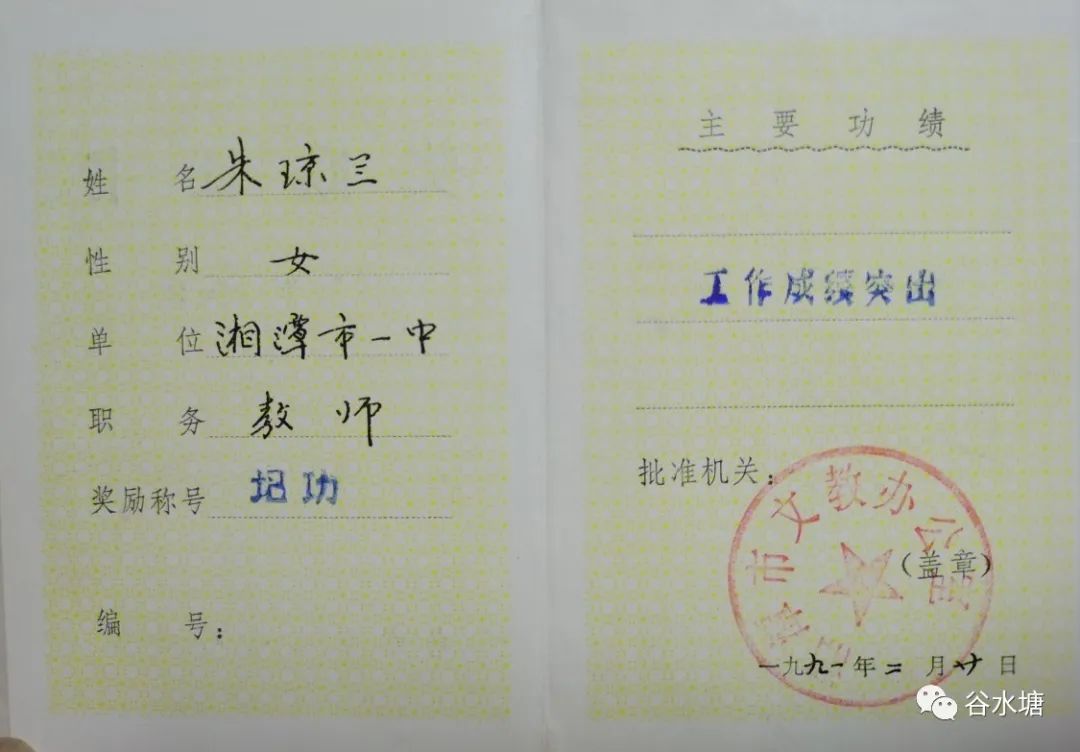 姓名 朱琼兰
性别 女
单位 湘潭市一中
职务 教师
奖励称号 记功
编号：
主要功绩
工作成绩突出
批准机关：
湘潭市文教办公室
（盖章）
一九九一年二月廿日
谷水塘